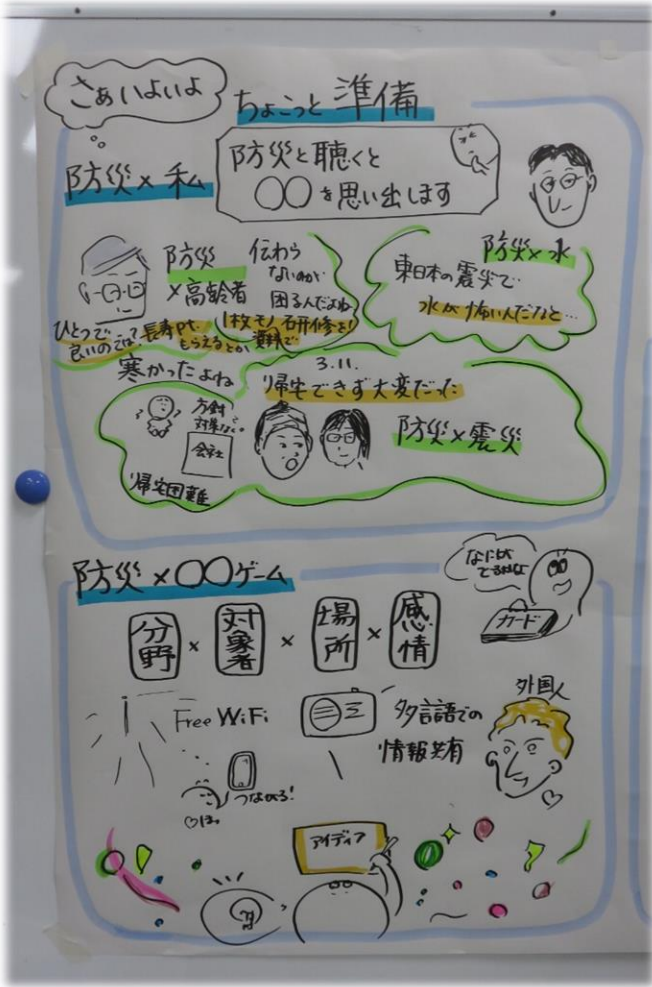 さぁいよいよ
ちょこっと準備
防災×私
防災と聴くと
○○を思い出します
防災
×高齢者
伝わら
ないのが
困るんだよね
1枚モノ研修を!
資料で
ひとつで
良いのでは?
長寿pt.
もらえるとか
防災×水
東日本の震災で
水が怖いんだなと…
寒かったよね
3.11.
帰宅できず大変だった
方針
会社
帰宅困難
防災×震災
防災×○○ゲーム
なにが
でるかな
カード
分野×対象者×場所×感情
Free WiFi
つながる!
多言語での
情報共有
外国人
アイディア